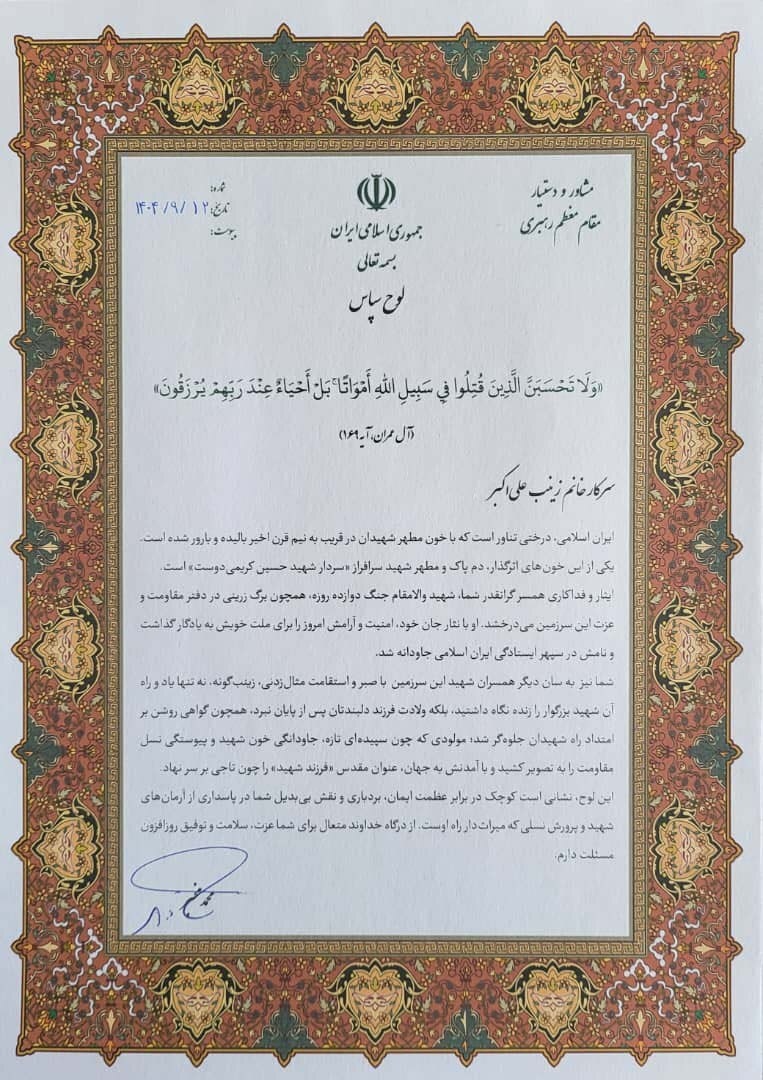 مشاور و دستیار
مقام معظم رهبری
جمهوری اسلامی ایران
بسمه تعالی
شماره:
تاریخ: ۱۴۰۴/۹/۱۲
پیوست:
لوح سپاس
«وَلَا تَحْسَبَنَّ الَّذِينَ قُتِلُوا فِي سَبِيلِ اللَّهِ أَمْوَاتًا ۚ بَلْ أَحْيَاءٌ عِنْدَ رَبِّهِمْ يُرْزَقُونَ»
(آل عمران، آیه ۱۶۹)
سرکار خانم زینب علی‌اکبر
ایران اسلامی، درختی تناور است که با خون مطهر شهیدان در قریب به نیم قرن اخیر بالیده و بارور شده است.
یکی از این خون‌های اثرگذار، دم پاک و مطهر شهید سرافراز «سردار شهید حسین کریمی‌دوست» است.
ایثار و فداکاری همسر گرانقدر شما، شهید والامقام جنگ دوازده روزه، همچون برگ زرینی در دفتر مقاومت و
عزت این سرزمین می‌درخشد. او با نثار جان خود، امنیت و آرامش امروز را برای ملت خویش به یادگار گذاشت
و نامش در سپهر ایستادگی ایران اسلامی جاودانه شد.
شما نیز به سان دیگر همسران شهید این سرزمین با صبر و استقامت مثال‌زدنی، زینب‌گونه، نه تنها یاد و راه
آن شهید بزرگوار را زنده نگاه داشتید، بلکه ولادت فرزند دلبندتان پس از پایان نبرد، همچون گواهی روشن بر
امتداد راه شهیدان جلوه‌گر شد؛ مولودی که چون سپیده‌ای تازه، جاودانگی خون شهید و پیوستگی نسل
مقاومت را به تصویر کشید و با آمدنش به جهان، عنوان مقدس «فرزند شهید» را چون تاجی بر سر نهاد.
این لوح، نشانی است کوچک در برابر عظمت ایمان، بردباری و نقش بی‌بدیل شما در پاسداری از آرمان‌های
شهید و پرورش نسلی که میراث‌دار راه اوست. از درگاه خداوند متعال برای شما عزت، سلامت و توفیق روزافزون
مسئلت دارم.